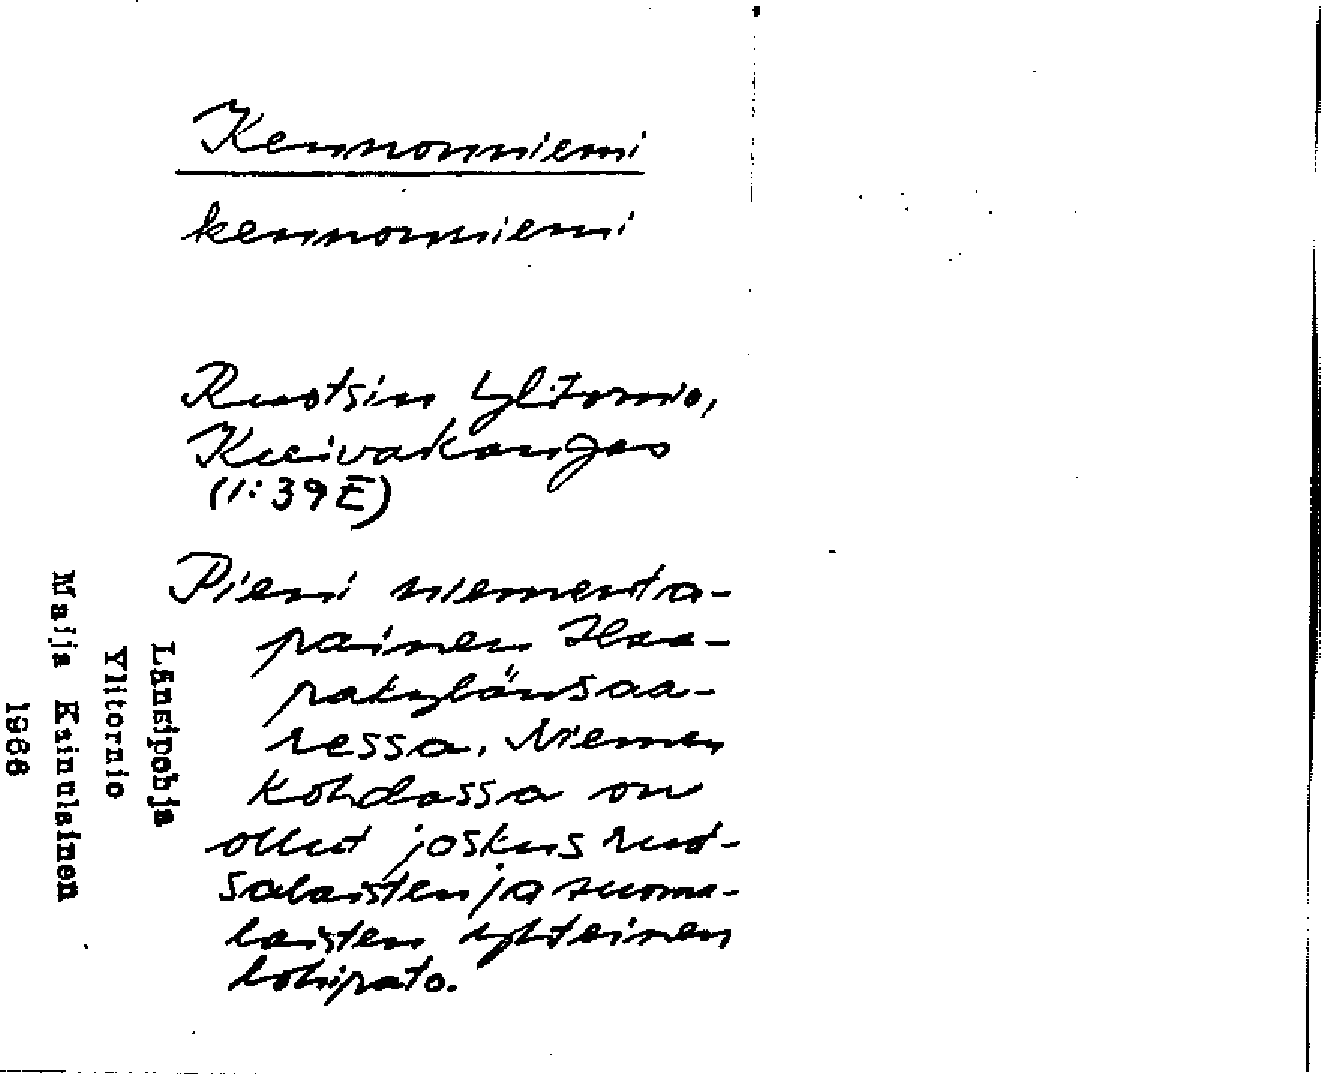 Kennonniemi
kennonniemi
Ruotsin Ylitornio,
Kuivakangas
(1:39 E)
Pieni niementa-
painen Haa-
pakylänsaa-
ressa. Niemen
kohdassa on
ollut joskus ruot-
salaisten ja suoma-
laisten yhteinen
lohipato.
Länsipohja
Ylitornio
Maija Kainulainen
1988